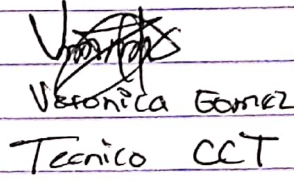 Veronica Gomez
Tecnico CCT